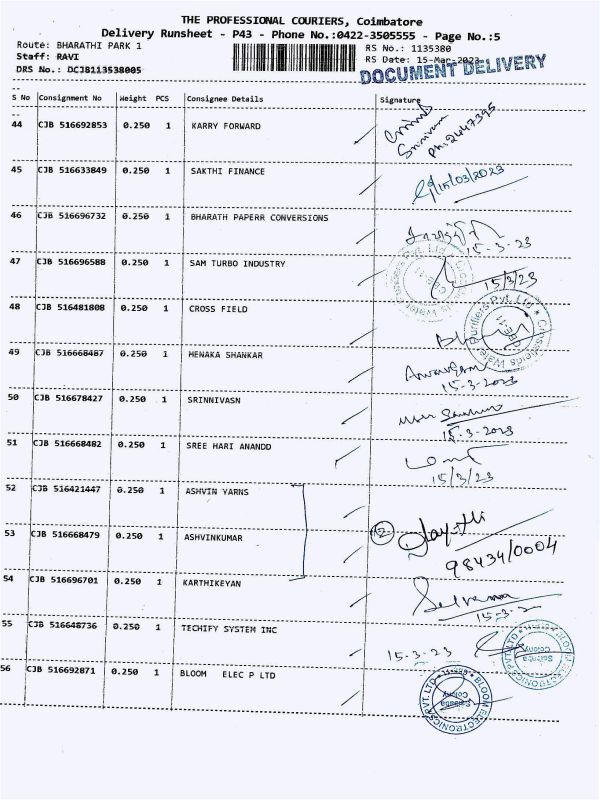 THE PROFESSIONAL COURIERS, Coimbatore
Delivery Runsheet - P43 - Phone No.:0422-3505555 - Page No.:5
Route: BHARATHI PARK 1
RS No.: 1135380
Staff: RAVI
RS Date: 15-Mar-2023
DRS No.: DCJB113538005
DOCUMENT DELIVERY
S No Consignment No Weight PCS Consignee Details Signature
44 CJB 516692853 0.250 1 KARRY FORWARD
Srinivasan
45 CJB 516633849 0.250 1 SAKTHI FINANCE
15/03/2023
46 CJB 516696732 0.250 1 BHARATH PAPERR CONVERSIONS
15-3-23
47 CJB 516696588 0.250 1 SAM TURBO INDUSTRY
15/3/23
48 CJB 516481808 0.250 1 CROSS FIELD
49 CJB 516668487 0.250 1 HENAKA SHANKAR
15-3-2023
50 CJB 516678427 0.250 1 SRINNIVASN
15-3-2023
51 CJB 516668482 0.250 1 SREE HARI ANANDD
15/3/23
52 CJB 516421447 0.250 1 ASHVIN YARNS
53 CJB 516668479 0.250 1 ASHVINKUMAR
2
98434/0004
54 CJB 516696701 0.250 1 KARTHIKEYAN
Selvama
15-3-2
55 CJB 516648736 0.250 1 TECHIFY SYSTEM INC
15-3-23
56 CJB 516692871 0.250 1 BLOOM ELEC P LTD
BLOOM ELECTRONICS PVT. LTD